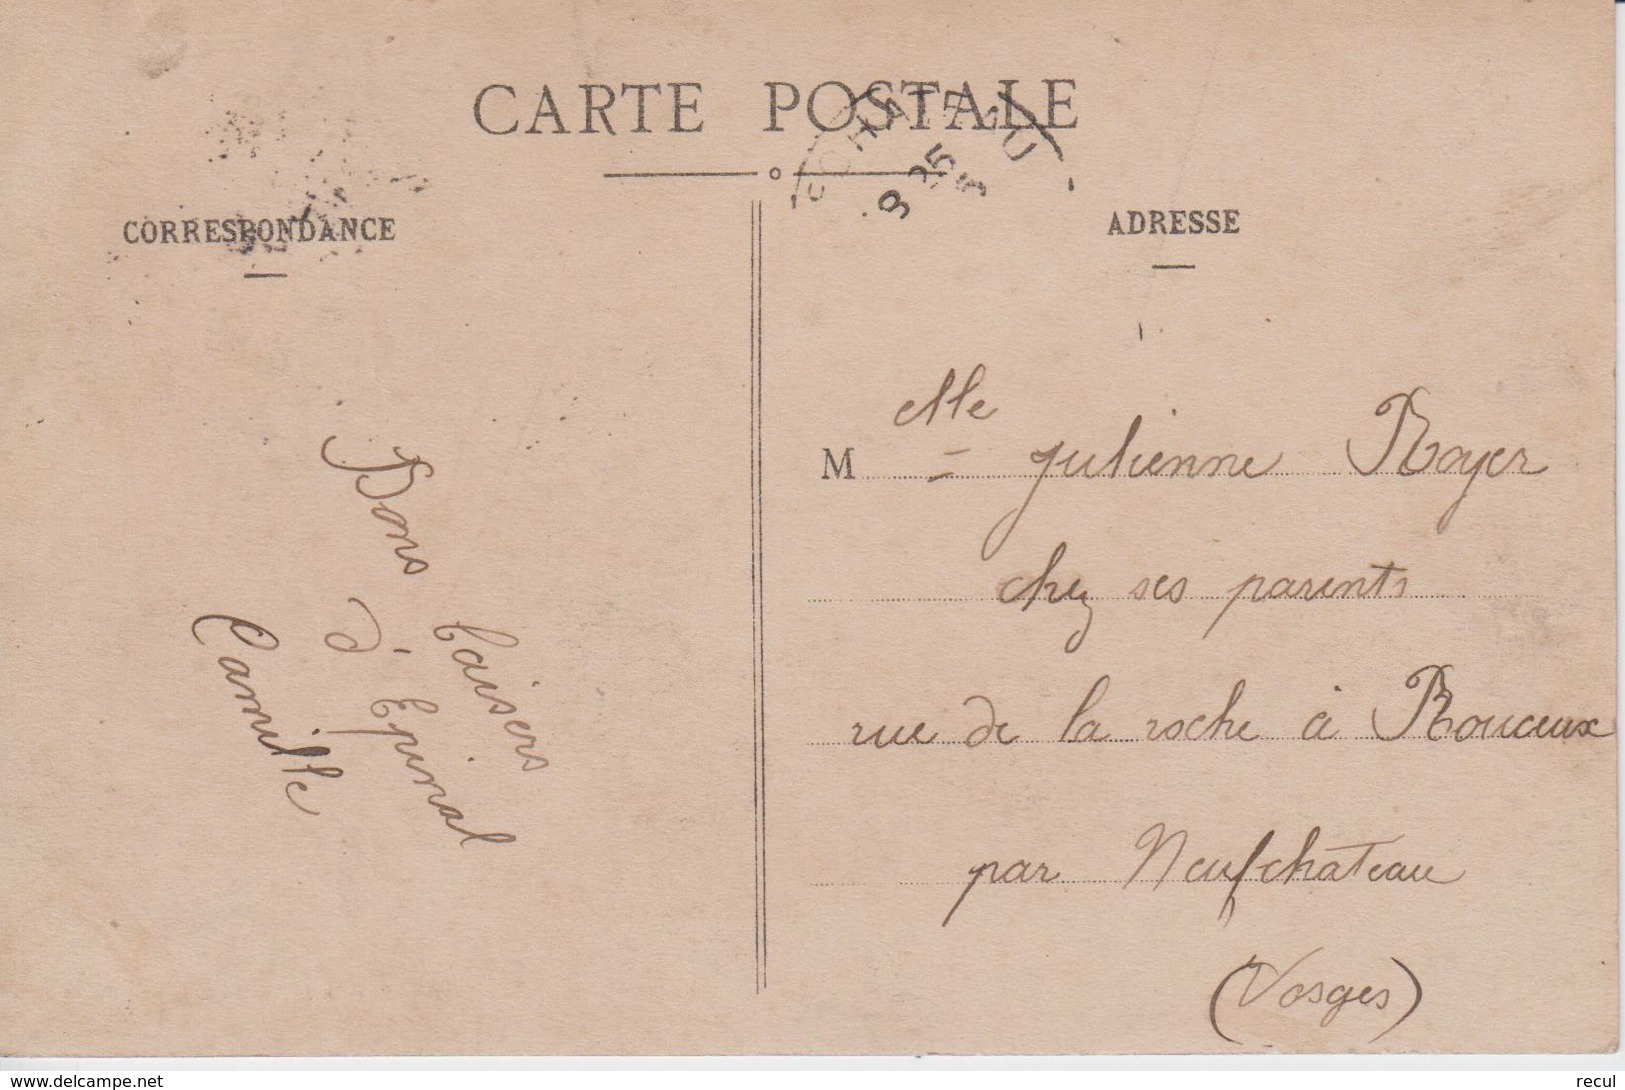 CARTE POSTALE
CORRESPONDANCE
ADRESSE
Bons baisers
d'Epinal
Camille
Mlle
M Julienne Royer
chez ses parents
rue de la roche à Rouceux
par Neufchateau
(Vosges)
www.delcampe.net
recul